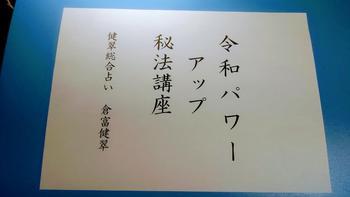 令和パワー
アップ
秘法講座
健翠総合占い 倉富健翠